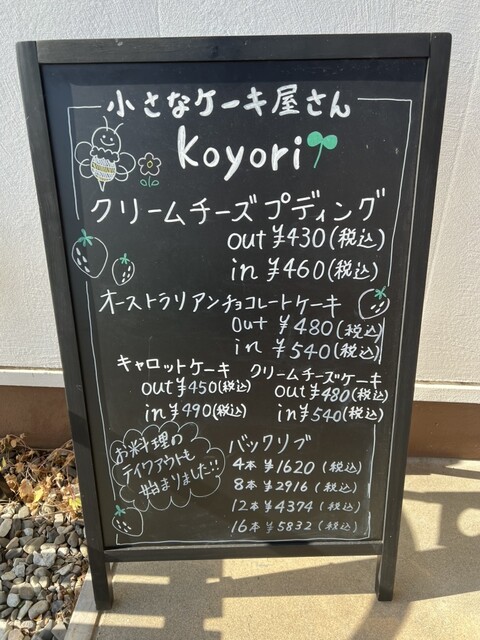 小さなケーキ屋さん
koyori
クリームチーズプディング
out ¥430(税込)
in ¥460(税込)
オーストラリアンチョコレートケーキ
out ¥480(税込)
in ¥540(税込)
キャロットケーキ
out ¥450(税込)
in ¥490(税込)
クリームチーズケーキ
out ¥480(税込)
in ¥540(税込)
お料理の
テイクアウトも
始まりました!!
バックリブ
4本 ¥1620 (税込)
8本 ¥2916 (税込)
12本 ¥4374 (税込)
16本 ¥5832 (税込)